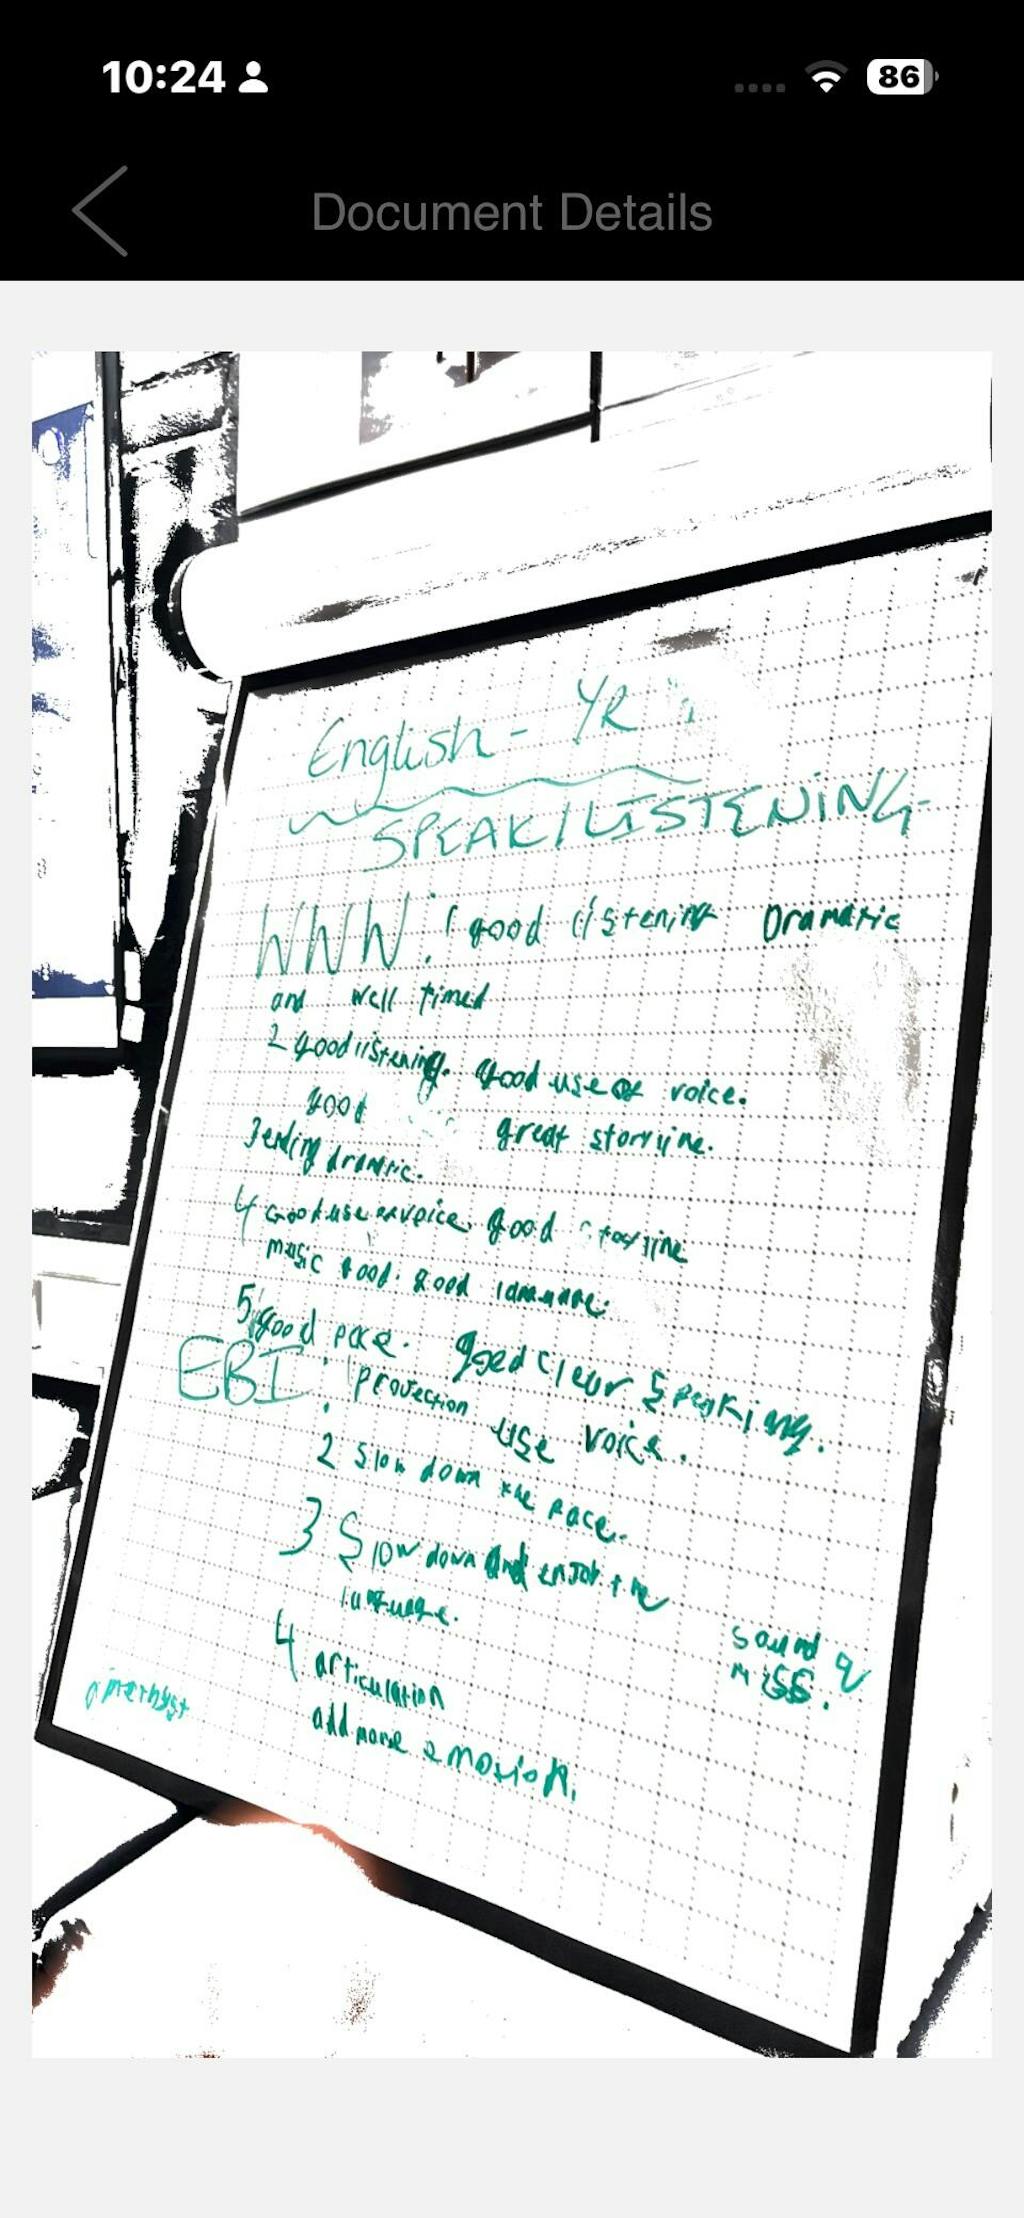 10:24
86
Document Details
English - YR
SPEAK/LISTENING
WWW: 1 good listening Dramatic
and well timed
2 good listening. good use of voice.
good great storyline.
3 ending dramtic.
4 Good use of voice. good storyline
music good. good
5 good pace. good clear speaking.
EBI: 1 projection use voice.
2 slow down the pace.
3 Slow down and enjoy the
language.
sound
miss.
4 articulation
add more emotion.